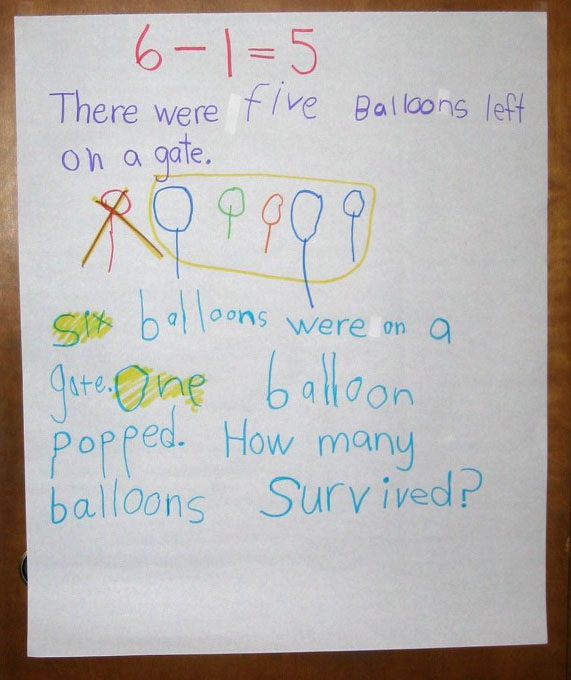 6-1=5
There were five Balloons left
on a gate.
six balloons were on a
gate. One balloon
popped. How many
balloons Survived?